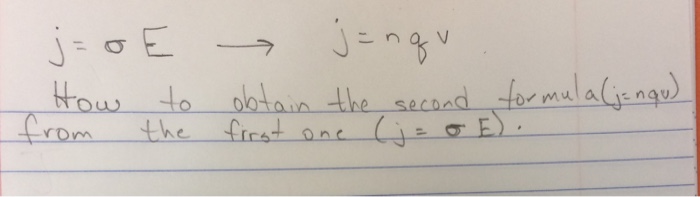 j = σ E → j = nqv
How to obtain the second formula (j=nqv)
from the first one (j = σ E).